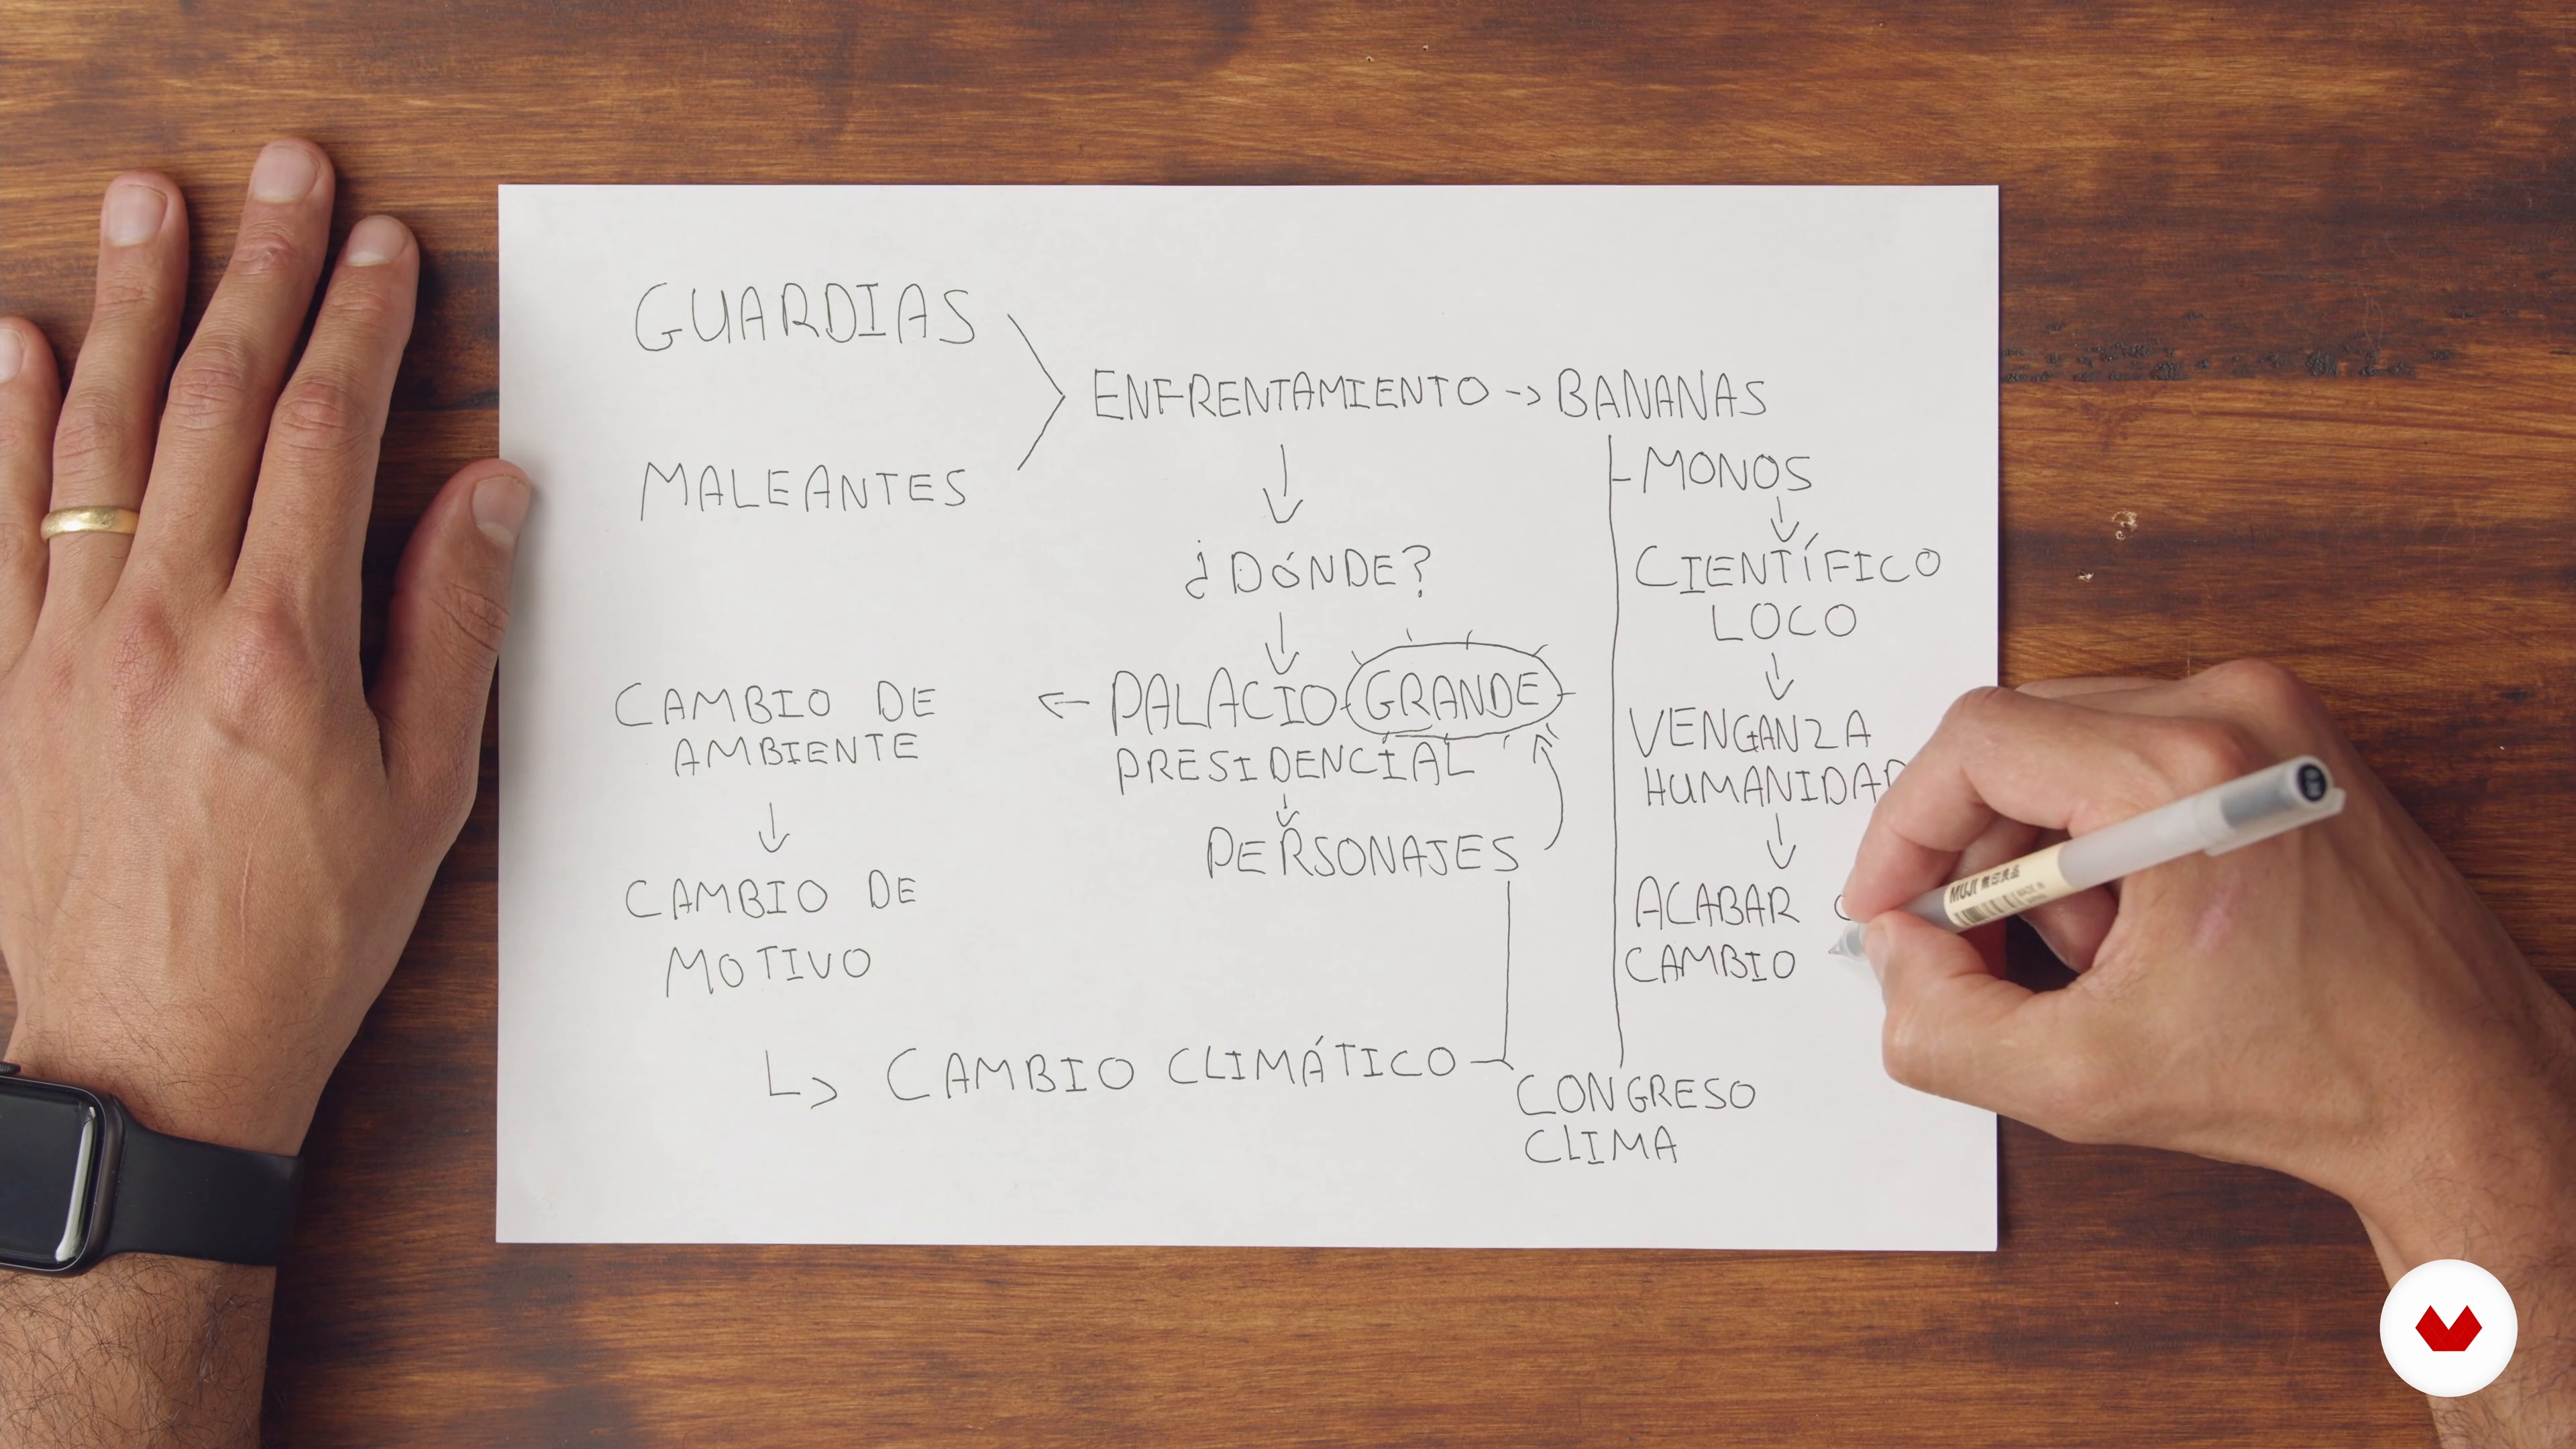 GUARDIAS
MALEANTES
ENFRENTAMIENTO -> BANANAS
MONOS
CIENTÍFICO
LOCO
VENGANZA
HUMANIDAD
ACABAR
CAMBIO
¿DÓNDE?
PALACIO GRANDE
PRESIDENCIAL
PERSONAJES
CAMBIO DE
AMBIENTE
CAMBIO DE
MOTIVO
CAMBIO CLIMÁTICO
CONGRESO
CLIMA
MUJI 無印良品